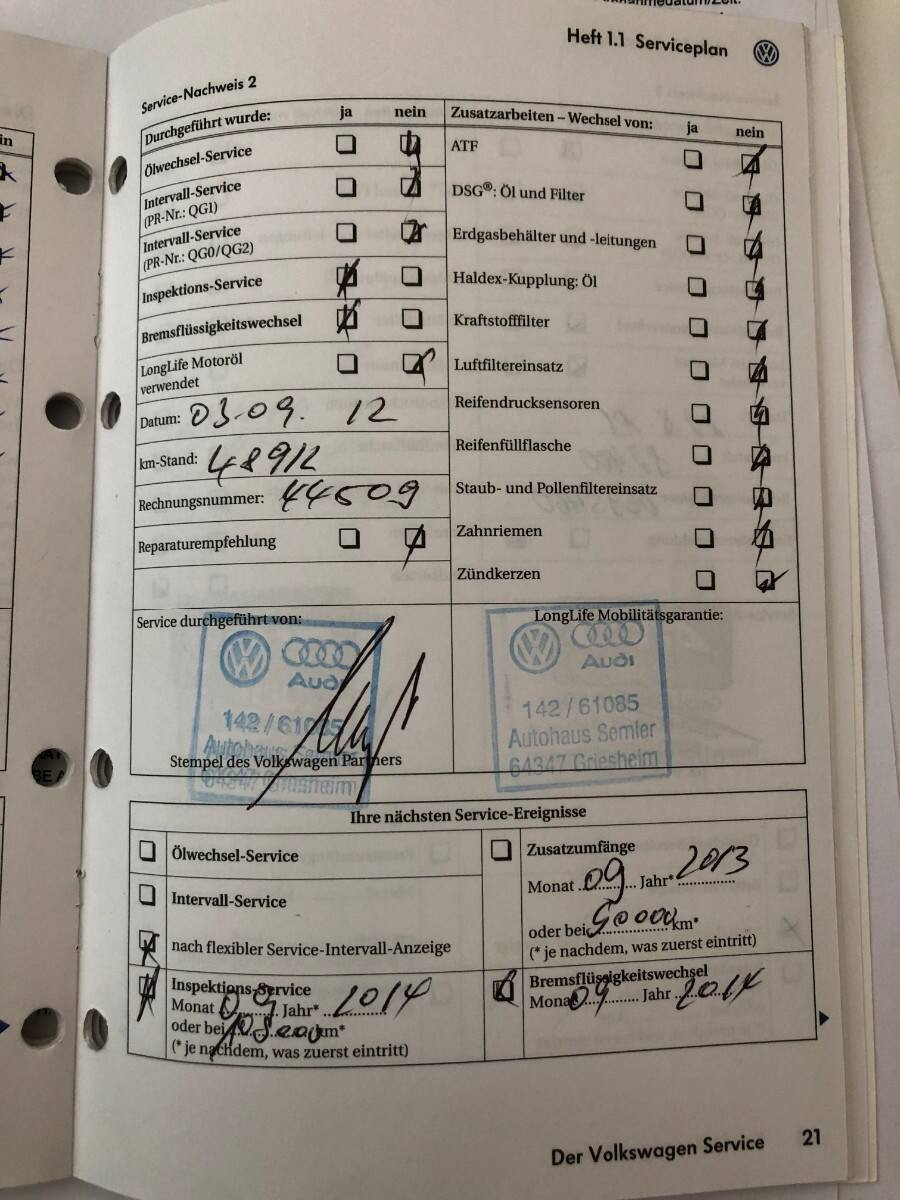 Heft 1.1 Serviceplan
Service-Nachweis 2
Durchgeführt wurde: ja nein
Ölwechsel-Service
Intervall-Service
(PR-Nr.: QG1)
Intervall-Service
(PR-Nr.: QG0/QG2)
Inspektions-Service
Bremsflüssigkeitswechsel
LongLife Motoröl
verwendet
Datum: 03.09. 12
km-Stand: 48912
Rechnungsnummer: 44509
Reparaturempfehlung
Zusatzarbeiten – Wechsel von: ja nein
ATF
DSG®: Öl und Filter
Erdgasbehälter und -leitungen
Haldex-Kupplung: Öl
Kraftstofffilter
Luftfiltereinsatz
Reifendrucksensoren
Reifenfüllflasche
Staub- und Pollenfiltereinsatz
Zahnriemen
Zündkerzen
Service durchgeführt von:
Audi
142/61085
Autohaus Semler
64347 Griesheim
Stempel des Volkswagen Partners
LongLife Mobilitätsgarantie:
Audi
142/61085
Autohaus Semler
64347 Griesheim
Ihre nächsten Service-Ereignisse
Ölwechsel-Service
Intervall-Service
nach flexibler Service-Intervall-Anzeige
Inspektions-Service
Monat 09 Jahr* 2014
oder bei km*
(* je nachdem, was zuerst eintritt)
Zusatzumfänge
Monat 09 Jahr* 2013
oder bei 90000 km*
(* je nachdem, was zuerst eintritt)
Bremsflüssigkeitswechsel
Monat 09 Jahr 2014
Der Volkswagen Service 21